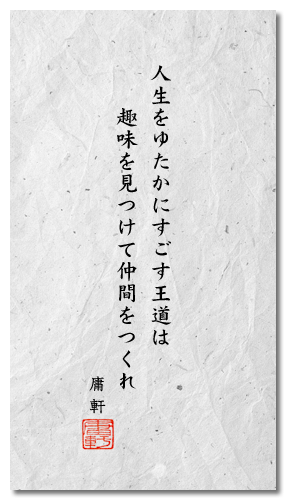 人生をゆたかにすごす王道は
趣味を見つけて仲間をつくれ
庸軒
庸軒